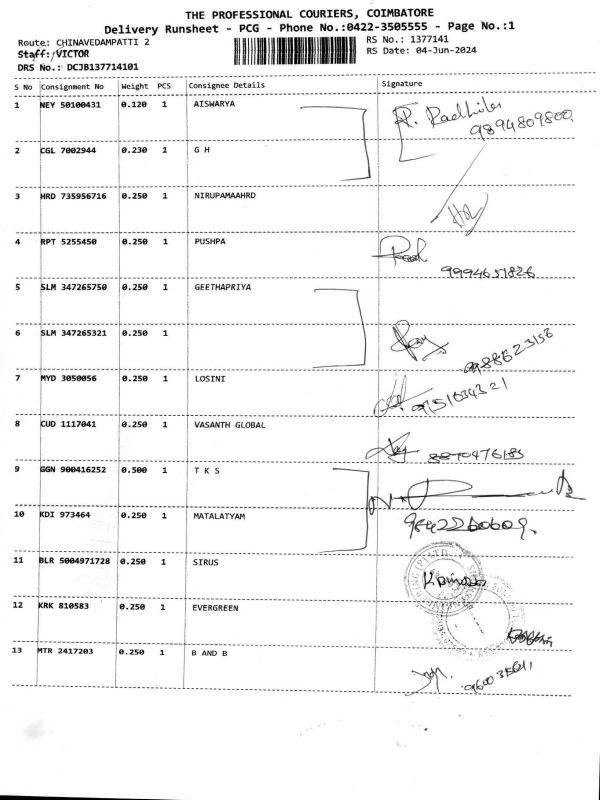 THE PROFESSIONAL COURIERS, COIMBATORE
Delivery Runsheet - PCG - Phone No.:0422-3505555 - Page No.:1
Route: CHINAVEDAMPATTI 2 RS No.: 1377141
Staff: VICTOR RS Date: 04-Jun-2024
DRS No.: DCJB137714101
S No Consignment No Weight PCS Consignee Details Signature
1 NEY 50100431 0.120 1 AISWARYA
9894809800
2 CGL 7002944 0.230 1 G H
3 HRD 735956716 0.250 1 NIRUPAMAAHRD
4 RPT 5255450 0.250 1 PUSHPA
9994651826
5 SLM 347265750 0.250 1 GEETHAPRIYA
6 SLM 347265321 0.250 1
7 MYD 3050056 0.250 1 LOSINI
8 CUD 1117041 0.250 1 VASANTH GLOBAL
9 GGN 900416252 0.500 1 T K S
10 KDI 973464 0.250 1 MATALATYAM
11 BLR 5004971728 0.250 1 SIRUS
12 KRK 810583 0.250 1 EVERGREEN
13 MTR 2417203 0.250 1 B AND B